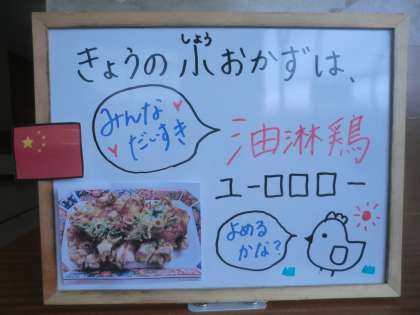 きょうの小おかずは、
しょう
みんな
だいすき
油淋鶏
ユー□□□ー
よめる
かな?